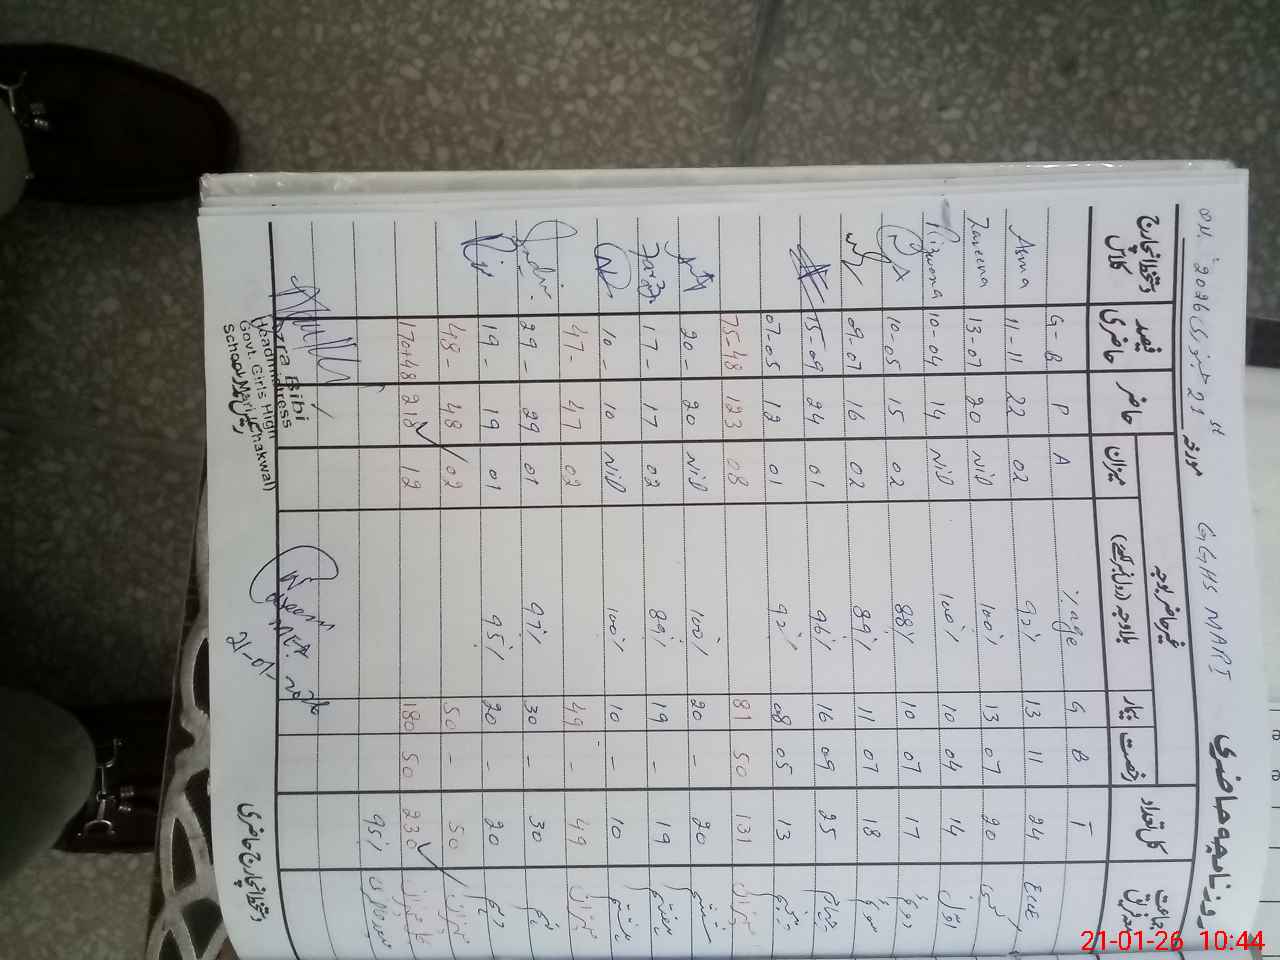 روزنامچہ حاضری GGHS MARI مورخہ 21st جنوری 2026ء
جماعت معہ فریق | کل تعداد | رخصت | بیمار | غیر حاضر بلا وجہ | میزان | حاضر | فیصد حاضری | دستخط انچارج کلاس
T | B | G | %age | A | P | G - B
ECE | 24 | 11 | 13 | 92% | 02 | 22 | 11-11 | Asma
20 | 07 | 13 | 100% | Nil | 20 | 13-07 | Zareena
اول | 14 | 04 | 10 | 100% | Nil | 14 | 10-04 | Rizwana
17 | 07 | 10 | 88% | 02 | 15 | 10-05
18 | 07 | 11 | 89% | 02 | 16 | 09-07
چہارم | 25 | 09 | 16 | 96% | 01 | 24 | 15-09
پنجم | 13 | 05 | 08 | 92% | 01 | 12 | 07-05
میزان | 131 | 50 | 81 | 08 | 123 | 75-48
ششم | 20 | - | 20 | 100% | Nil | 20 | 20 -
ہفتم | 19 | - | 19 | 89% | 02 | 17 | 17 -
ہشتم | 10 | - | 10 | 100% | Nil | 10 | 10 -
میزان | 49 | - | 49 | 02 | 47 | 47 -
نہم | 30 | - | 30 | 97% | 01 | 29 | 29 -
دہم | 20 | - | 20 | 95% | 01 | 19 | 19 -
میزان | 50 | - | 50 | 02 | 48 | 48 -
230 | 50 | 180 | 12 | 218 | 170+48
95%
دستخط انچارج حاضری
21-01-
Azra Bibi
Headmistress
Govt. Girls High
School Mari (Chakwal)
21-01-26 10:44